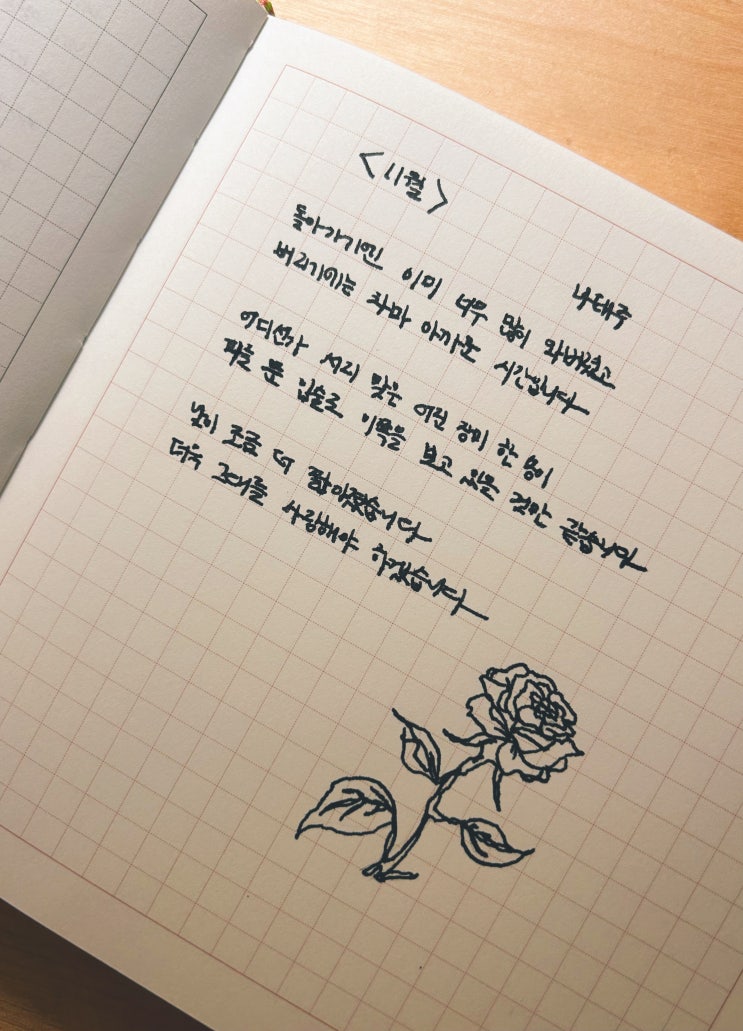 <11월>
나태주
돌아가기엔 이미 너무 많이 와버렸고
버리기에는 차마 아까운 시간입니다
어디선가 서리 맞은 어린 장미 한 송이
피를 문 입술로 이쪽을 보고 있을 것만 같습니다
낮이 조금 더 짧아졌습니다
더욱 그대를 사랑해야 하겠습니다